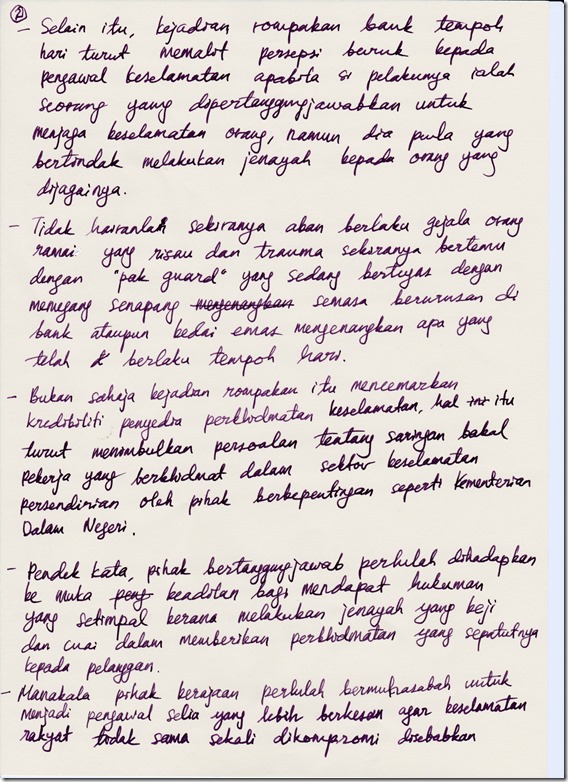 ②
- Selain itu, kejadian rompakan bank tempoh
hari turut memalit persepsi buruk kepada
pengawal keselamatan apabila si pelakunya ialah
seorang yang dipertanggungjawabkan untuk
menjaga keselamatan orang, namun dia pula yang
bertindak melakukan jenayah kepada orang yang
dijagainya.
- Tidak hairanlah sekiranya akan berlaku gejala orang
ramai yang risau dan trauma sekiranya bertemu
dengan "pak guard" yang sedang bertugas dengan
memegang senapang mengenangkan semasa berurusan di
bank ataupun kedai emas mengenangkan apa yang
telah berlaku tempoh hari.
- Bukan sahaja kejadian rompakan itu mencemarkan
kredibiliti penyedia perkhidmatan keselamatan, hal ini itu
turut menimbulkan persoalan tentang saringan bakal
pekerja yang berkhidmat dalam sektor keselamatan
persendirian oleh pihak berkepentingan seperti Kementerian
Dalam Negeri.
- Pendek kata, pihak bertanggungjawab perlulah dihadapkan
ke muka peng keadilan bagi mendapat hukuman
yang setimpal kerana melakukan jenayah yang keji
dan cuai dalam memberikan perkhidmatan yang sepatutnya
kepada pelanggan.
- Manakala pihak kerajaan perlulah bermuhasabah untuk
menjadi pengawal selia yang lebih berkesan agar keselamatan
rakyat tidak sama sekali dikompromi disebabkan